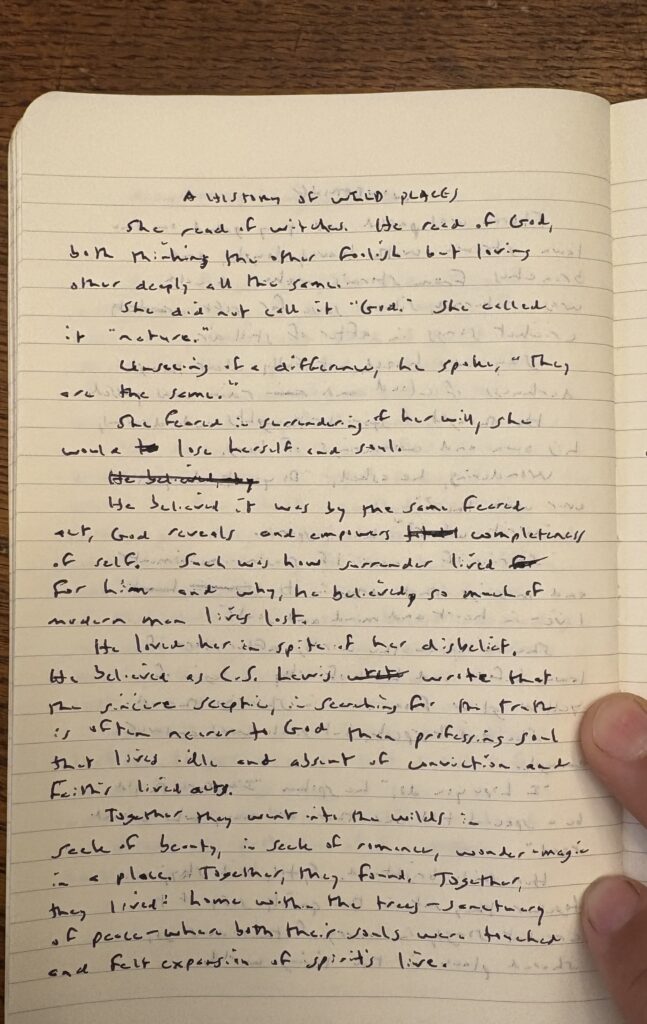 A HISTORY OF WILD PLACES
She read of witches. He read of God,
both thinking the other foolish but loving
other deeply all the same.
She did not call it "God." She called
it "nature."
Unseeing of a difference, he spoke, "They
are the same."
She feared in surrendering of her will, she
would to lose herself and soul.
He believed, by
He believed it was by the same feared
act, God reveals and empowers completeness
of self. Such was how surrender lived for
for him and why, he believed, so much of
modern man lives lost.
He loved her in spite of her disbelief.
He believed as C.S. Lewis wrote that
the sincere sceptic, in searching for the truth
is often nearer to God than professing soul
that lives idle and absent of conviction and
faith's lived acts.
Together they went into the wilds in
seek of beauty, in seek of romance, wonder-magic
in a place. Together, they found. Together,
they lived: home within the trees-sanctuary
of peace-where both their souls were touched
and felt expansion of spirit's live.